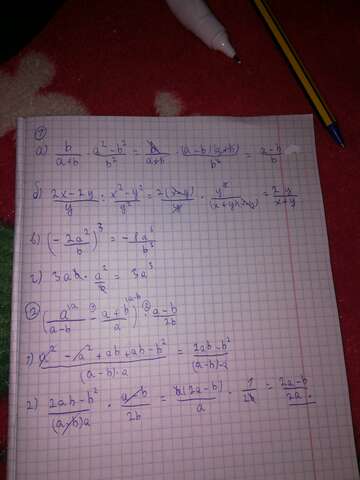 ①
а) b/(a+b) · (a²-b²)/b² = b/(a+b) · (a-b)(a+b)/b² = (a-b)/b
б) (2x-2y)/y : (x²-y²)/y² = 2(x-y)/y · y²/((x+y)(x-y)) = 2y/(x+y)
в) (-2a²/b)³ = -8a⁶/b³
г) 3ab · a²/b = 3a³
② (a/(a-b) - (a+b)/a) · (a-b)/2b
1) (a²-a²+ab+ab-b²)/((a-b)·a) = (2ab-b²)/((a-b)·a)
2) (2ab-b²)/((a-b)a) · (a-b)/2b = b(2a-b)/a · 1/2b = (2a-b)/2a.